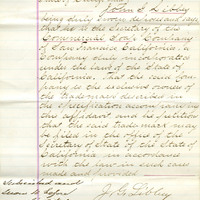 John G. Libby
being duly sworn deposes and says
that he is the Secretary of the
Commercial Soap Company
of San Francisco California, a
Company duly incorporated
under the laws of the State of
California, that the said Com-
pany is the exclusive owner of
the trademark described in
the specification accompanying
this affidavit and he petition
that the said trademark may
be filed in the office of the
Secretary of State of the State of
California, in accordance
with the law in such cases
made and provided
Subscribed and
Sworn to before
J. G. Libby